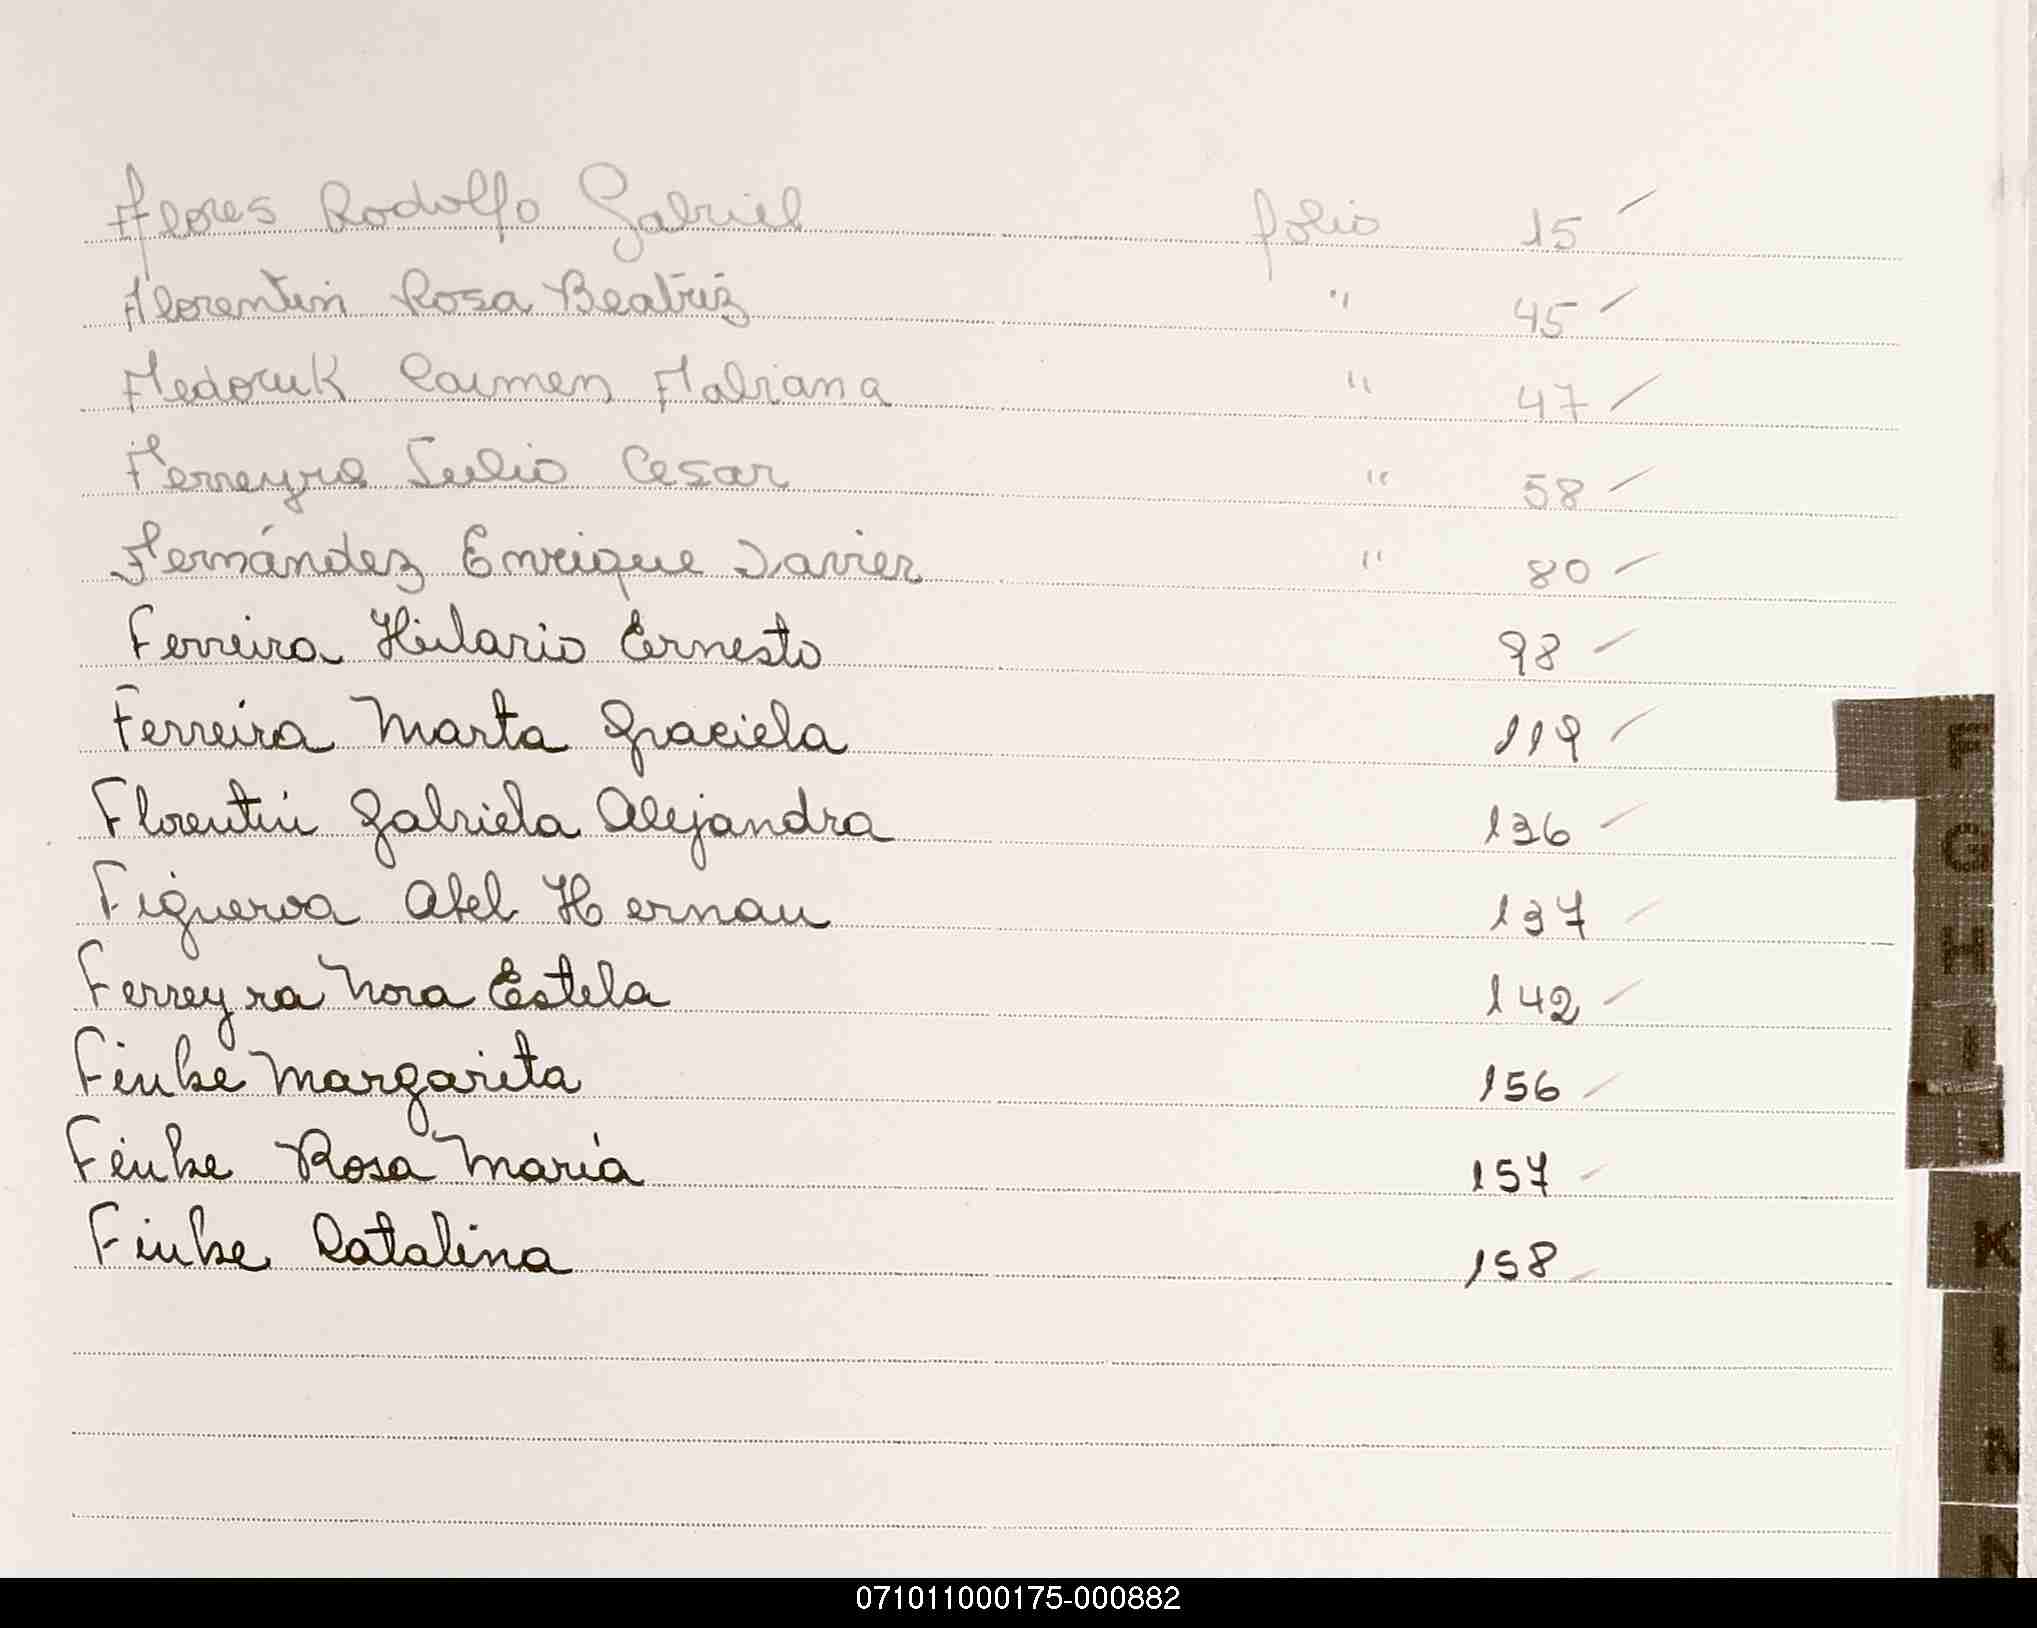 Flores Rodolfo Gabriel folio 15
Florentin Rosa Beatriz " 45
Fedoruk Carmen Fabiana " 47
Ferreyra Julio Cesar " 58
Fernández Enrique Javier " 80
Ferreira Hilario Ernesto 98
Ferreira Marta Graciela 119
Florentin Gabriela Alejandra 136
Figueroa Abel Hernan 137
Ferreyra Nora Estela 142
Finke Margarita 156
Finke Rosa María 157
Finke Catalina 158
F
G
H
I
J
K
L
N
071011000175-000882